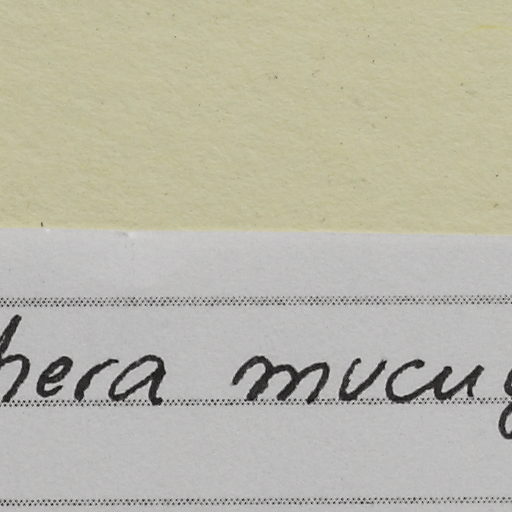 hera mucug